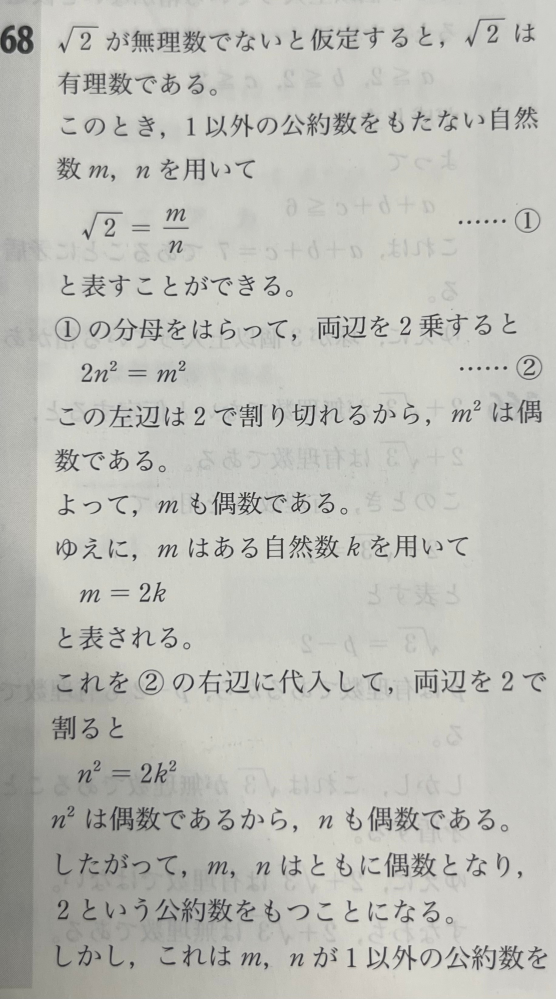 68 √2 が無理数でないと仮定すると，√2 は
有理数である。
このとき，1以外の公約数をもたない自然
数 m，n を用いて
√2 = m/n ……①
と表すことができる。
①の分母をはらって，両辺を2乗すると
2n² = m² ……②
この左辺は2で割り切れるから，m² は偶
数である。
よって，m も偶数である。
ゆえに，m はある自然数 k を用いて
m = 2k
と表される。
これを②の右辺に代入して，両辺を2で
割ると
n² = 2k²
n² は偶数であるから，n も偶数である。
したがって，m，n はともに偶数となり，
2という公約数をもつことになる。
しかし，これは m，n が1以外の公約数を